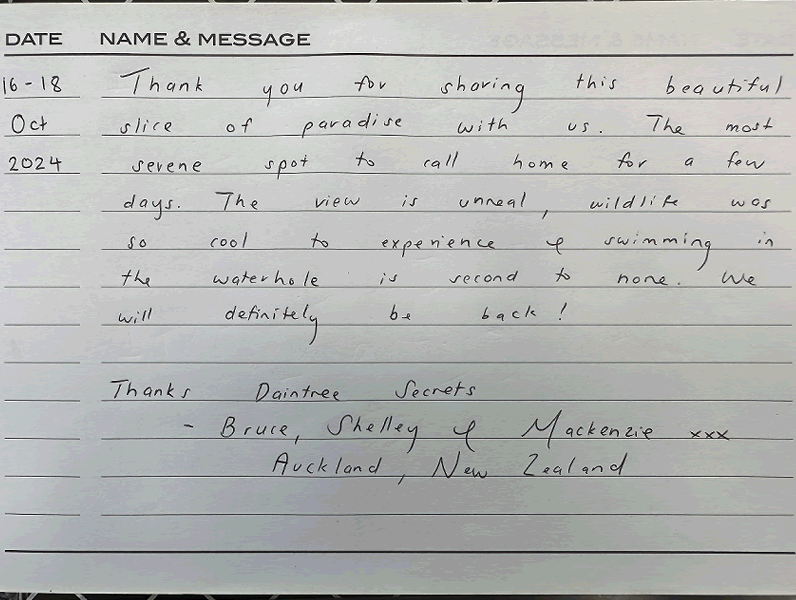 DATE NAME & MESSAGE
16-18 Thank you for sharing this beautiful
Oct slice of paradise with us. The most
2024 serene spot to call home for a few
days. The view is unreal, wildlife was
so cool to experience & swimming in
the waterhole is second to none. We
will definitely be back!
Thanks Daintree Secrets
- Bruce, Shelley & Mackenzie xxx
Auckland, New Zealand